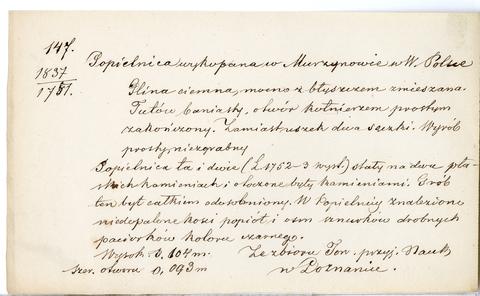 147.
1837
1751.
Popielnica wykopana w Murzynowie w W. Polsce
Glina ciemna, mocno z błyszczem zmieszana.
Tułów baniasty, otwór kołnierzem prostym
zakończony. Zamiast uszek dwa sęczki. Wyrób
prosty, niezgrabny
Popielnica ta i dwie (L 1752-3 wyst.) stały na dwu pła-
skich kamieniach i otoczone były kamieniami. Grób
ten był całkiem odosobniony. W popielnicy znaleziono
niedopalone kości popiół i osm sznurków drobnych
paciorków koloru czarnego.
Wysok 0,104 m. Ze zbioru Tow. przyj. Nauk
szer. otworu 0,093 m w Poznaniu.